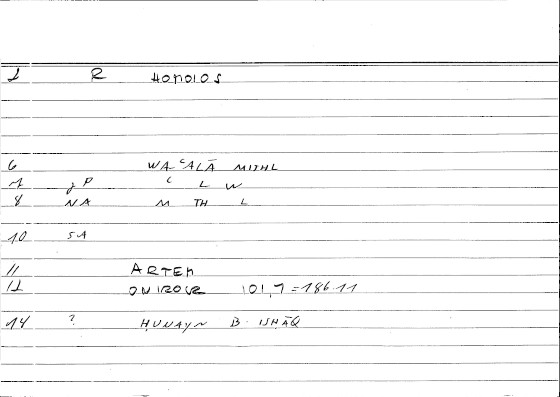 1 R HOMOIOS
6 WA ʿALĀ MITHL
7 JP ʿ L W
8 NA M TH L
10 SA
11 ARTEM
12 ONIROCR 101,7 = 186.11
14 ? ḤUNAYN B. ISḤĀQ